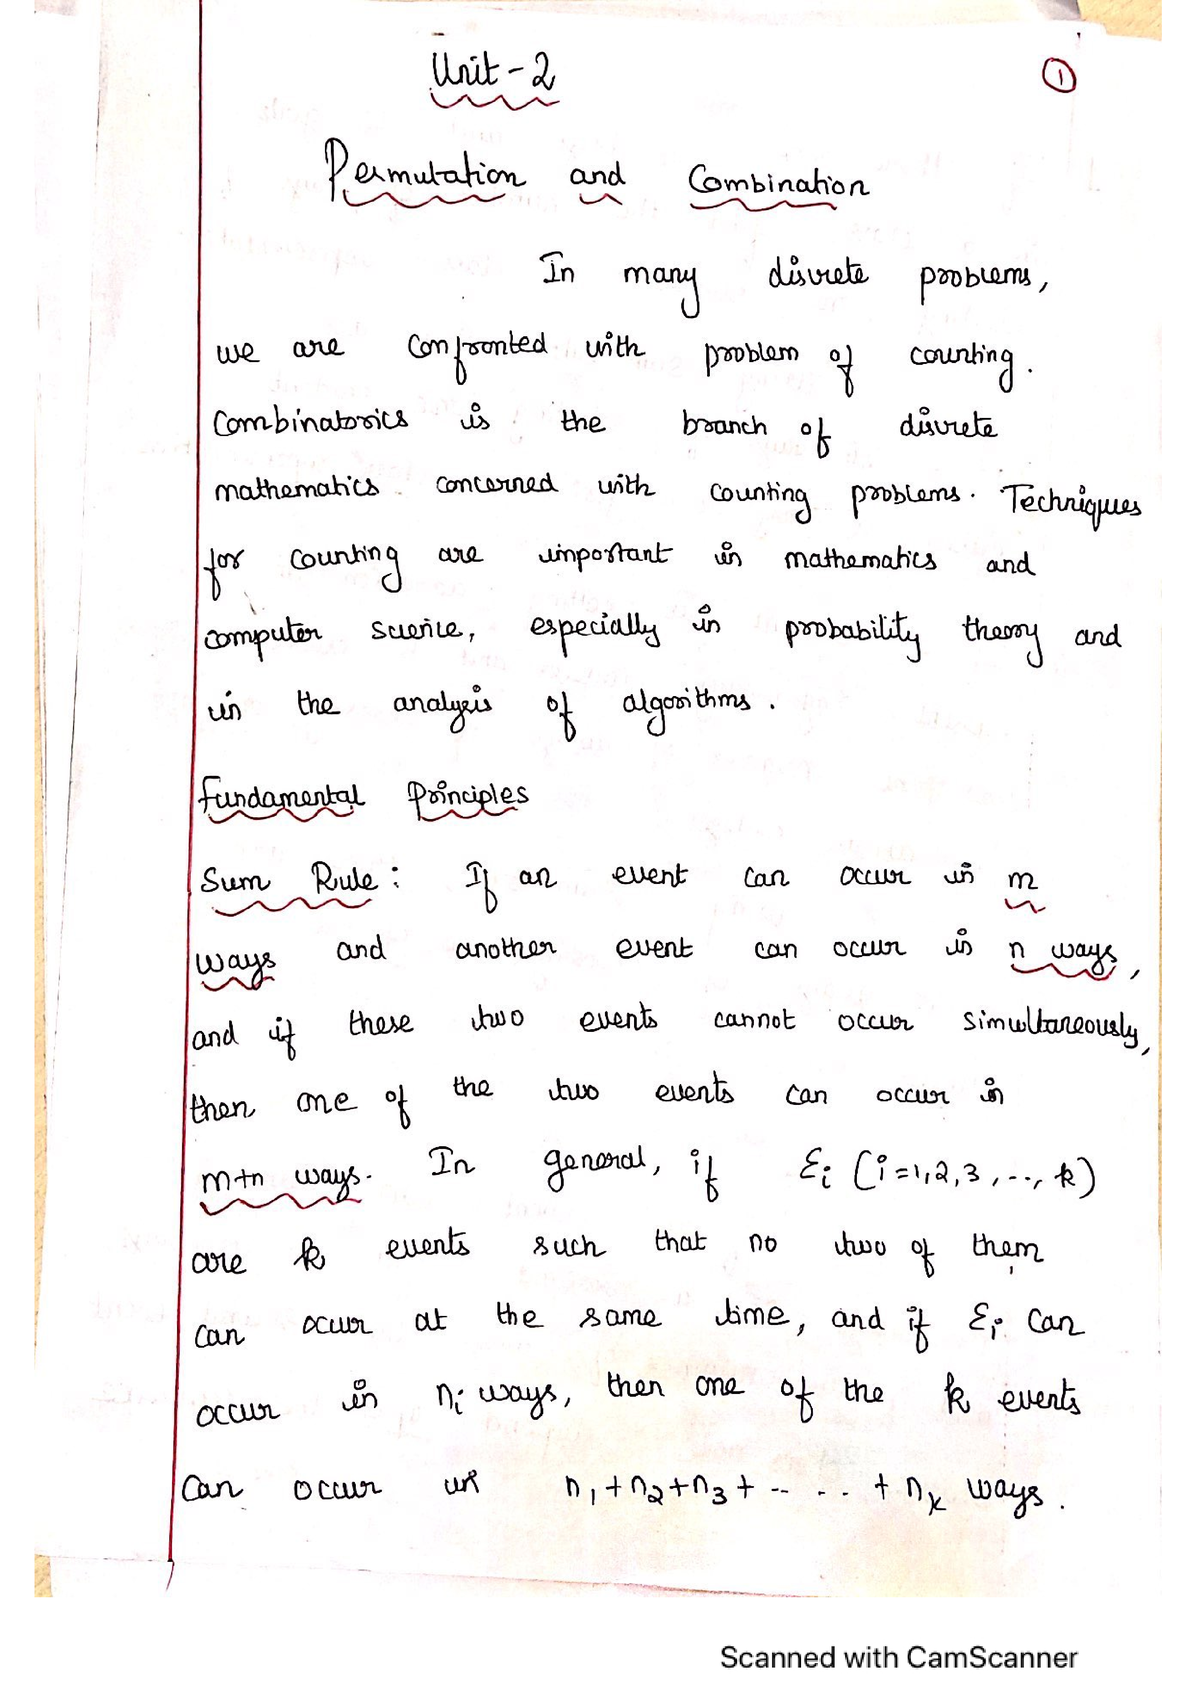 Unit-2
1
Permutation and Combination
In many discrete problems,
we are confronted with problem of counting.
Combinatorics is the branch of discrete
mathematics concerned with counting problems. Techniques
for counting are important in mathematics and
computer science, especially in probability theory and
in the analysis of algorithms.
Fundamental Principles
Sum Rule: If an event can occur in m
ways and another event can occur in n ways,
and if these two events cannot occur simultaneously,
then one of the two events can occur in
m+n ways. In general, if Ei (i=1,2,3,..., k)
are k events such that no two of them
can occur at the same time, and if Ei can
occur in ni ways, then one of the k events
can occur in n1+n2+n3+ -- - .. + nk ways.
Scanned with CamScanner